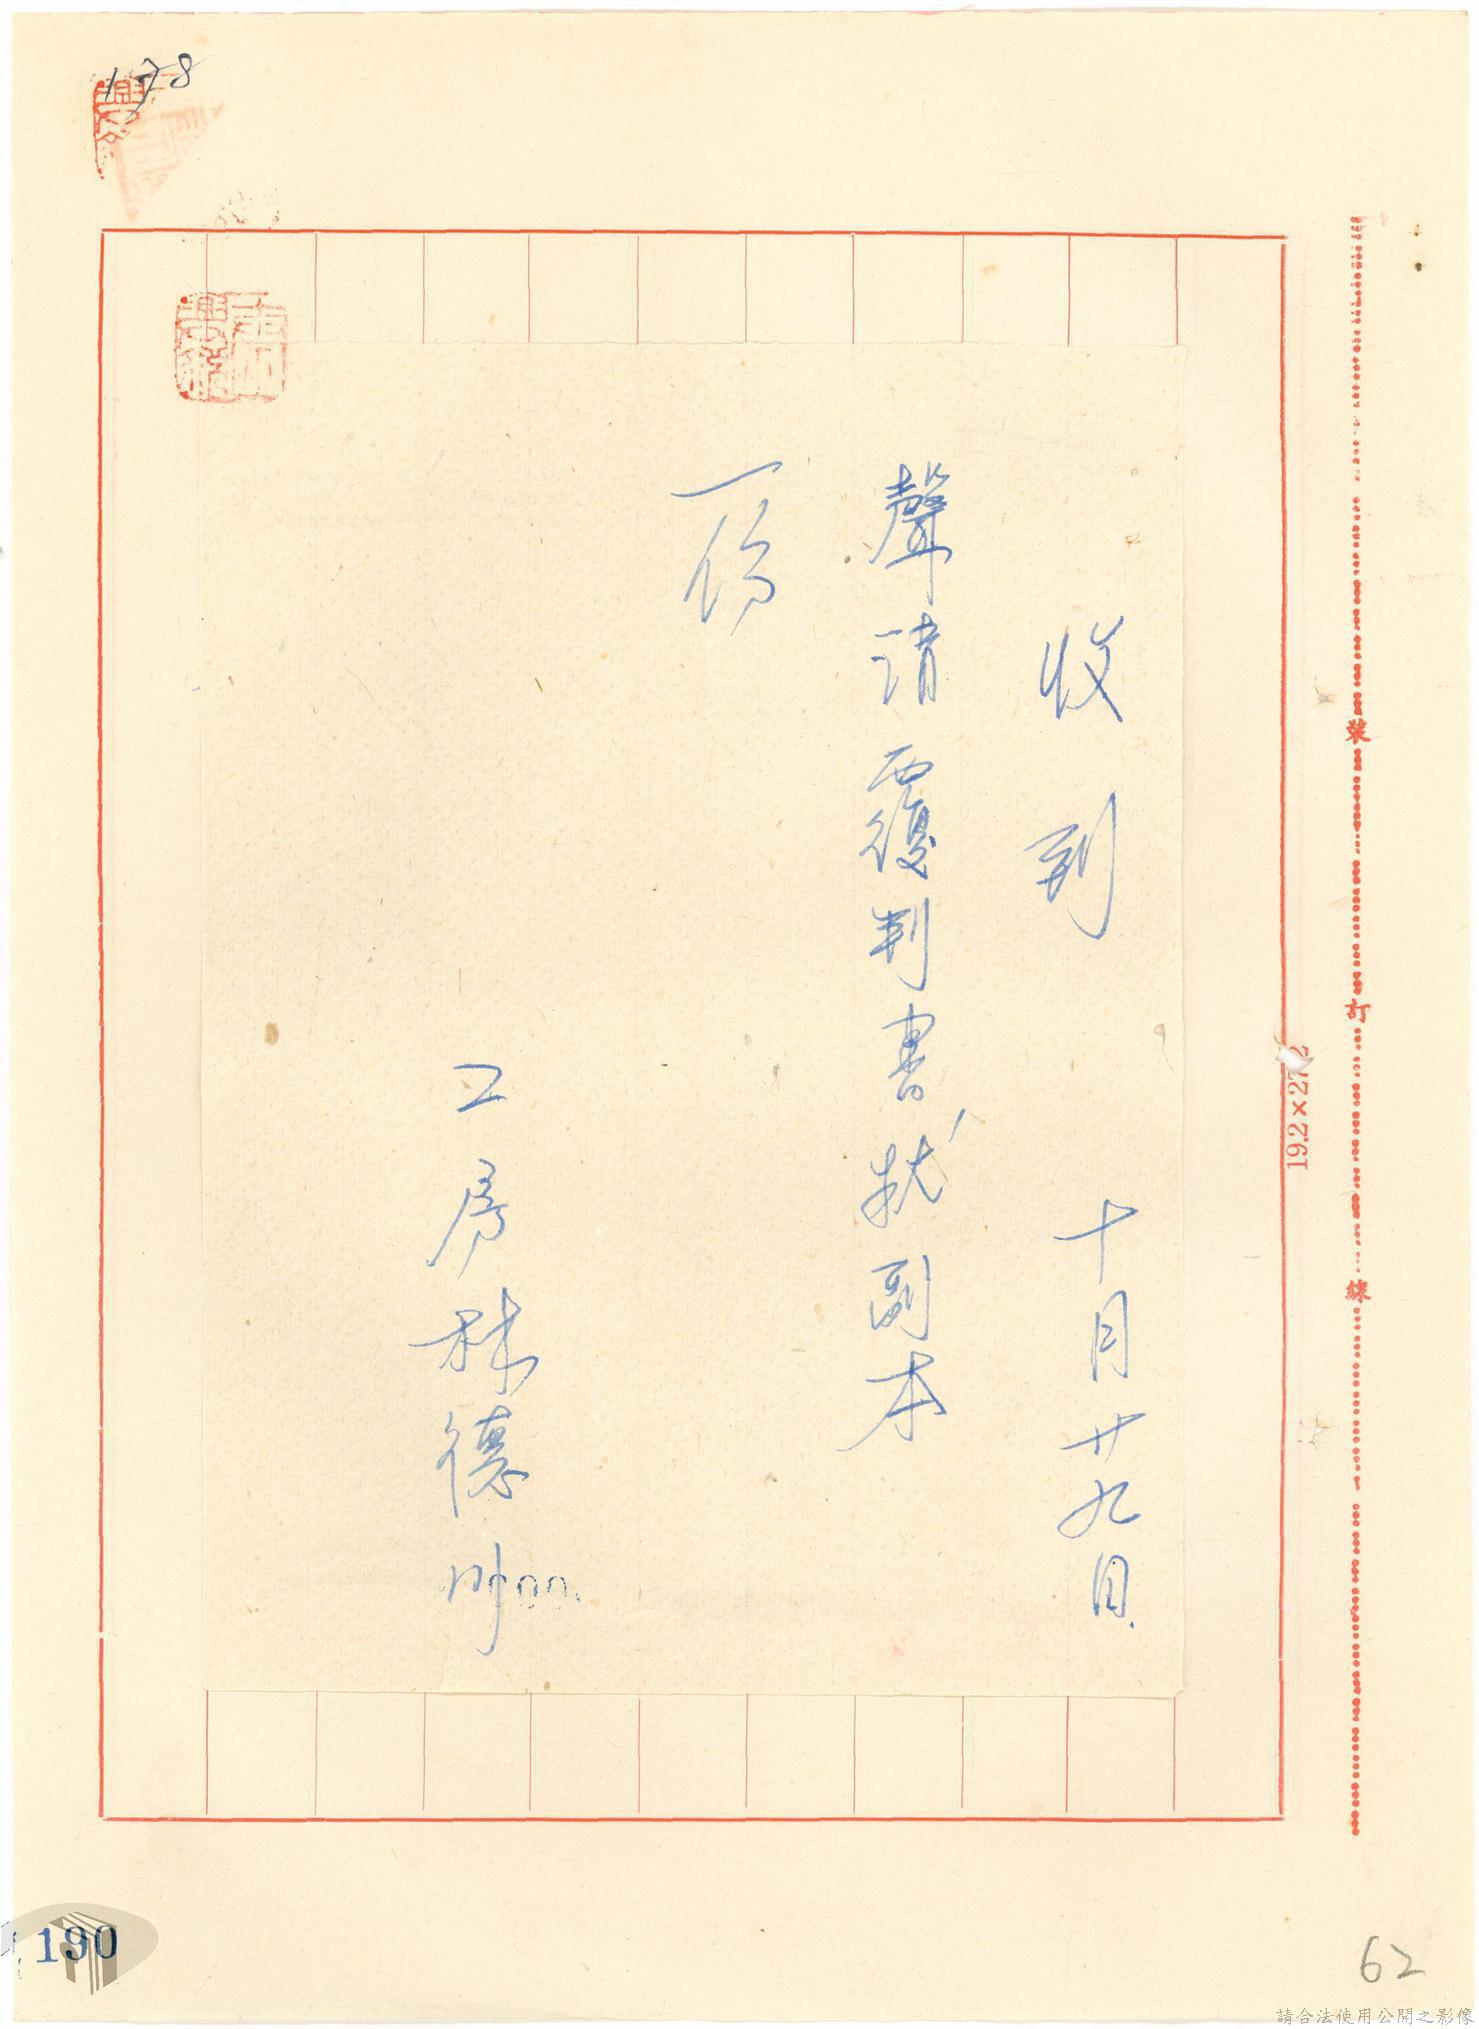 178
收到 十月廿九日
聲請覆判書狀副本
一份
工房林德川
裝
訂
線
19.2×27.2
190
62
請合法使用公開之影像